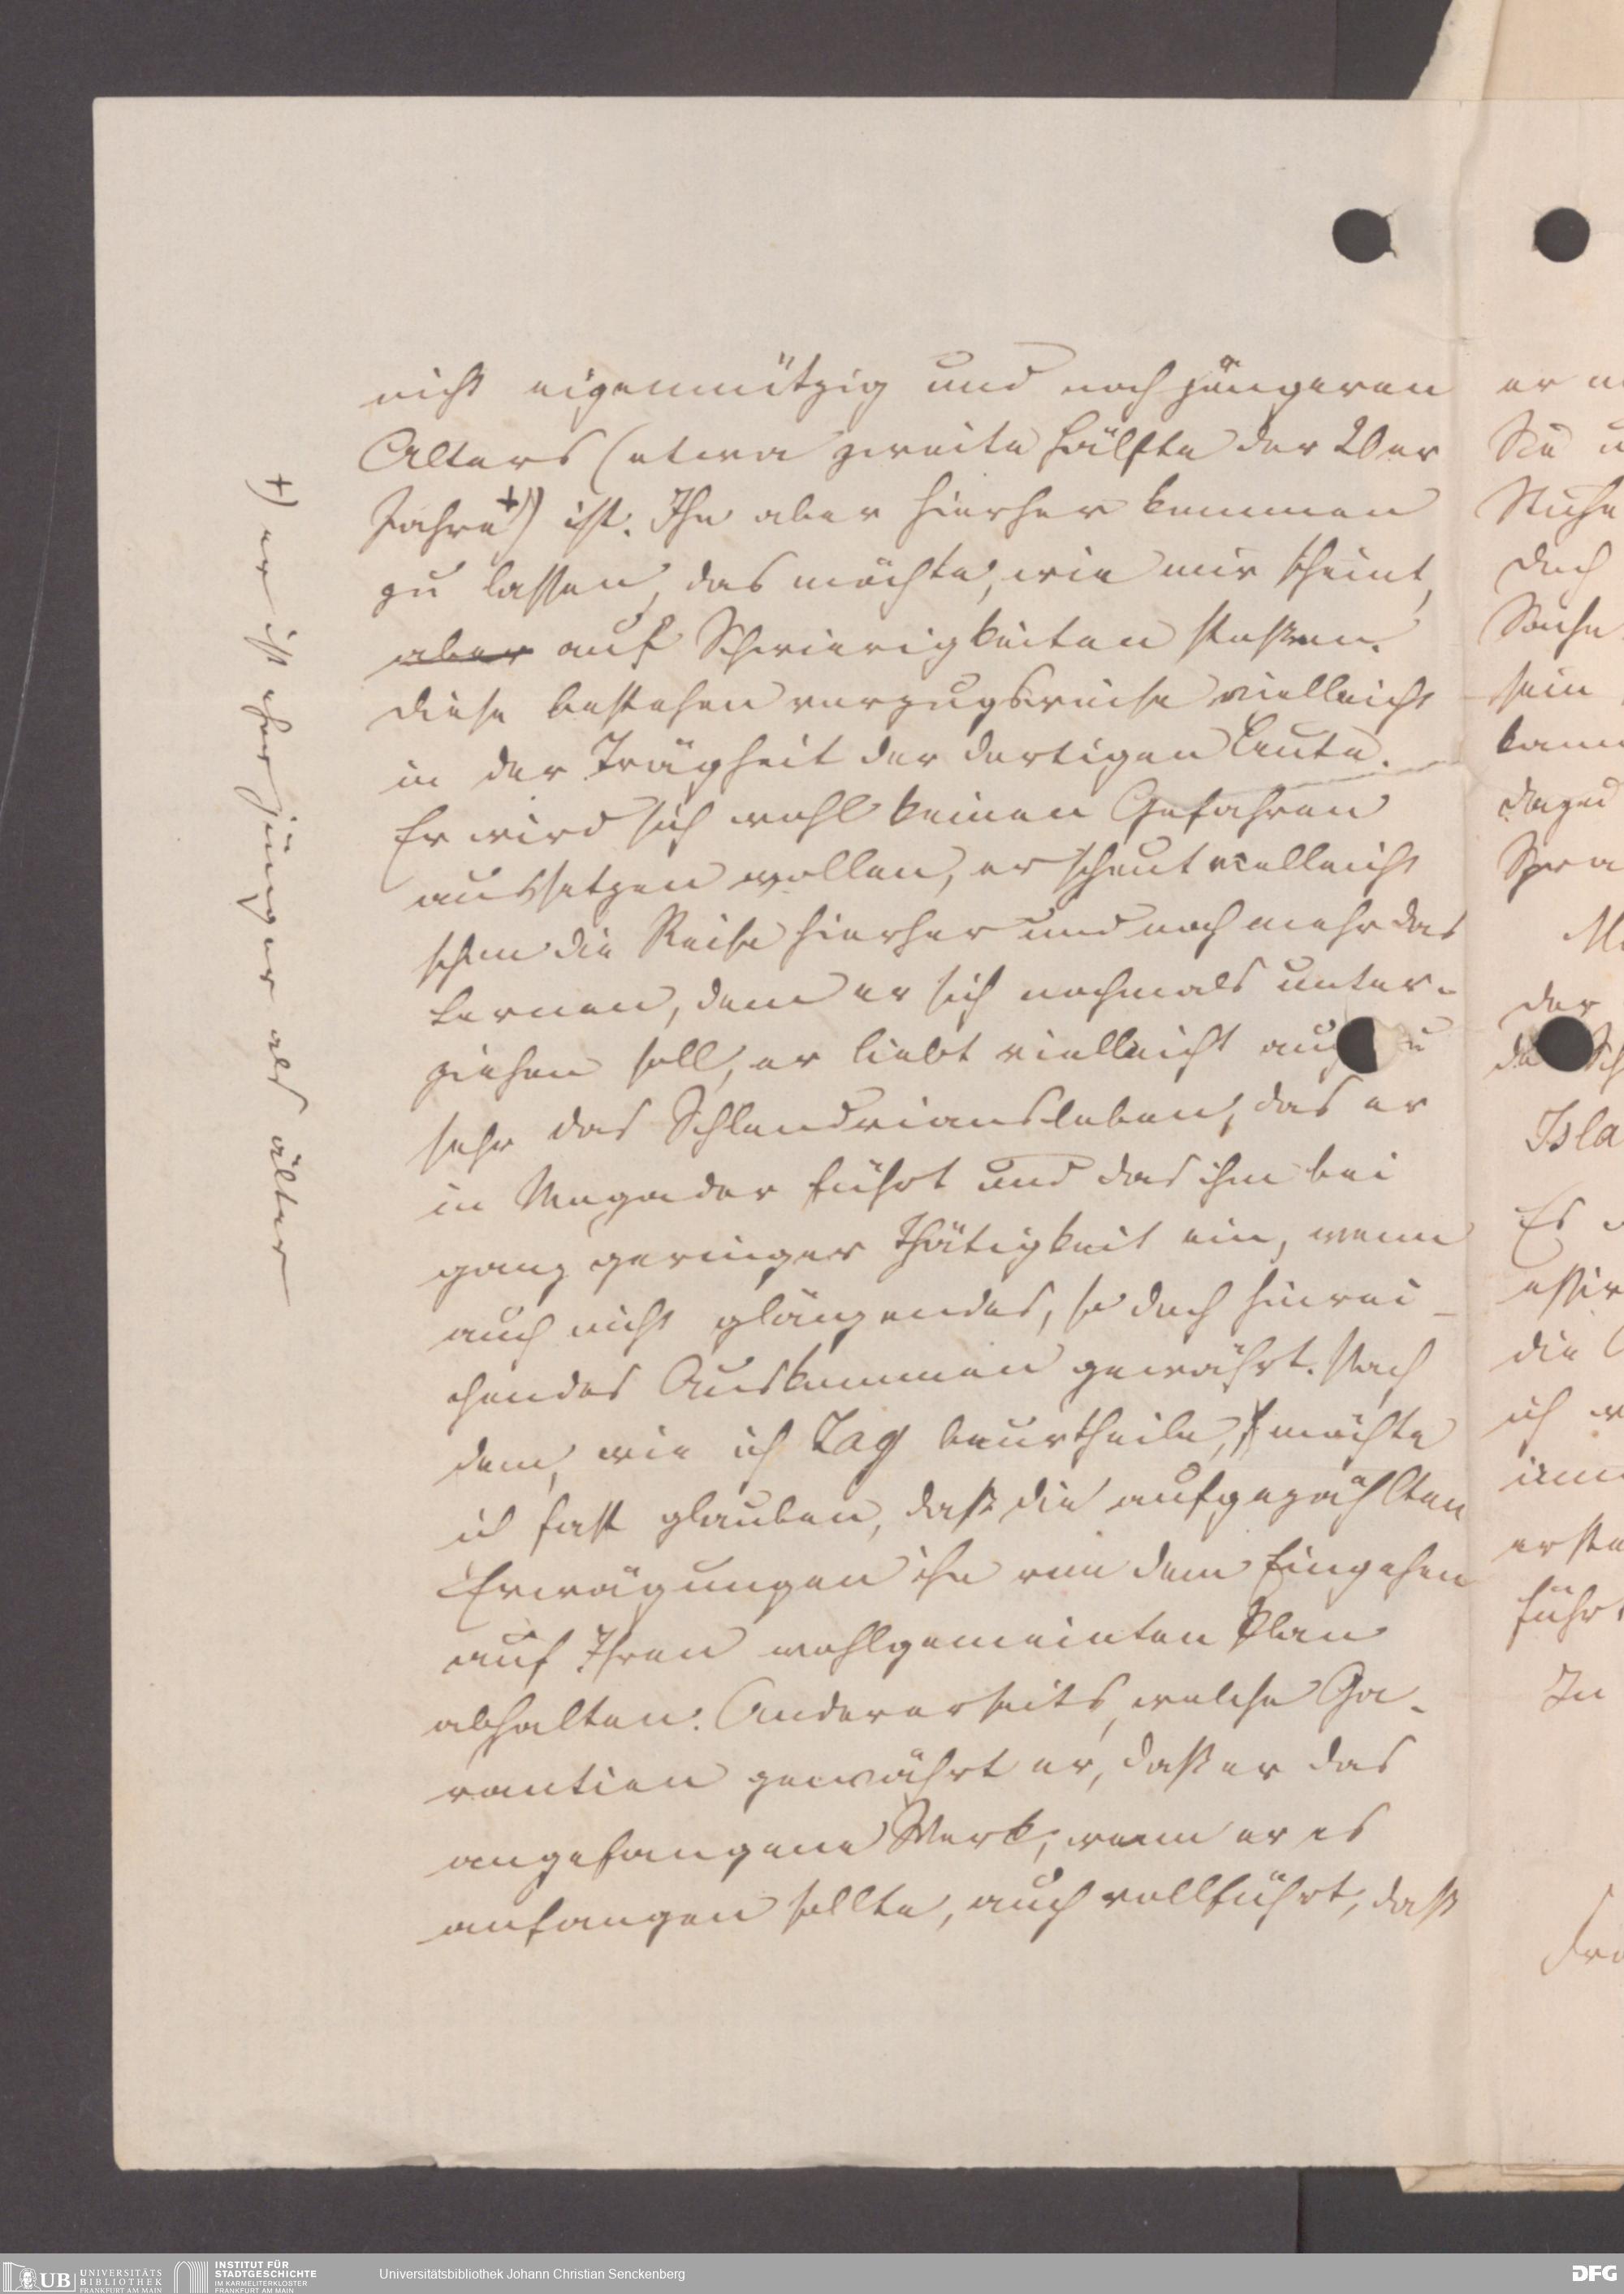 nicht eigennützig und noch jüngeren
Alters (etwa zweite Hälfte der 20er
Jahre +)) ist. Ihn aber hierher kommen
zu lassen, das möchte, wie mir scheint,
aber auf Schwierigkeiten stoßen.
Diese bestehen vorzugsweise vielleicht
in der Trägheit der dortigen Leute.
Er wird sich wohl keinen Gefahren
aussetzen wollen, er scheut vielleicht
schon die Reise hierher und noch mehr das
Lernen, dem er sich nochmals unter-
ziehen soll, er liebt vielleicht auch zu
sehr das Schlendriansleben, das er
in Mogador führt und das ihm bei
ganz geringer Thätigkeit ein, wenn
auch nicht glänzendes, so doch hinrei-
chendes Auskommen gewährt. Nach
dem, wie ich Zag beurtheile, möchte
ich fast glauben, daß die aufgezählten
Erwägungen ihn von dem Eingehen
auf Ihren wohlgemeinten Plan
abhalten. Andererseits, welche Ga-
rantien gewährt er, daß er das
angefangene Werk, wenn er es
anfangen sollte, auch vollführt, daß
+) er ist eher jünger als älter
er
Sie
doch
sein
der
Isla
Es
die
ich
führt
In
UB UNIVERSITÄTS
BIBLIOTHEK
FRANKFURT AM MAIN
INSTITUT FÜR
STADTGESCHICHTE
IM KARMELITERKLOSTER
FRANKFURT AM MAIN
Universitätsbibliothek Johann Christian Senckenberg
DFG